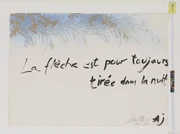 La flèche est pour toujours
tirée dans la nuit